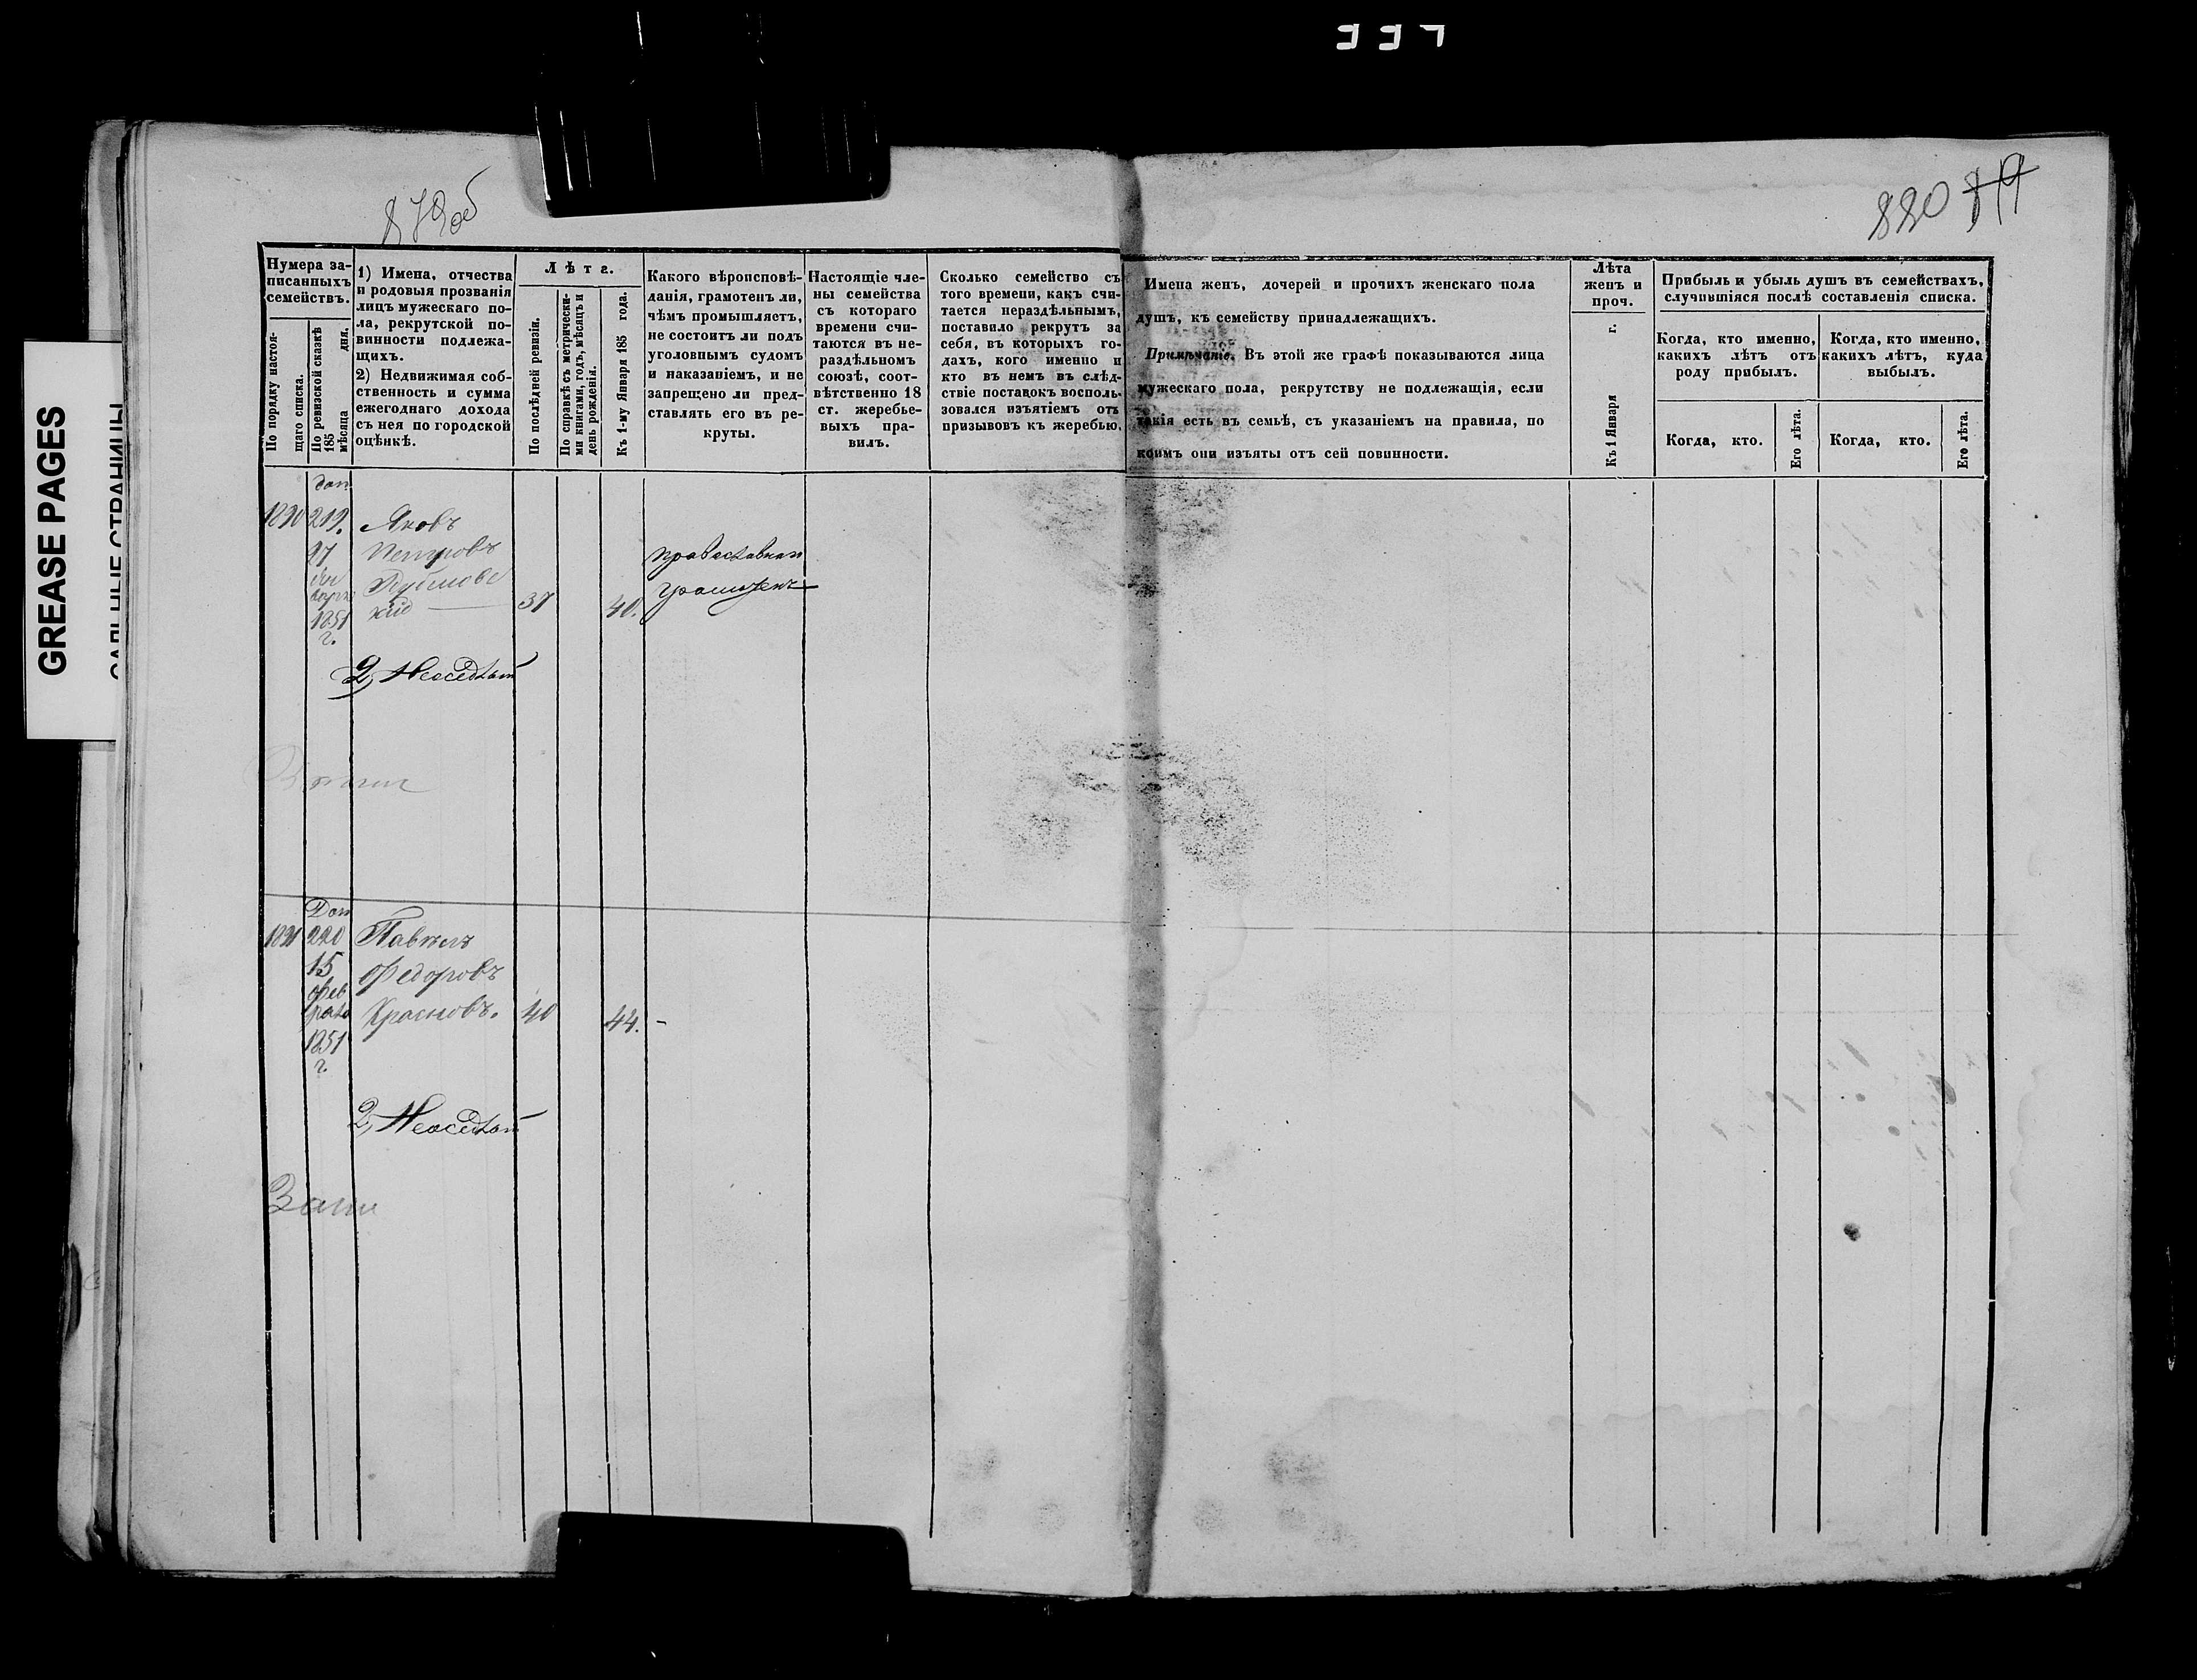 337
879 об
880
GREASE PAGES
САЛЬНЫЕ СТРАНИЦЫ
Нумера за-
писанныхъ
семействъ.
По порядку настоя-
щаго списка.
По ревизской сказкѣ
185 дня.
мѣсяца
1) Имена, отчества
и родовыя прозванія
лицъ мужескаго по-
ла, рекрутской по-
винности подлежа-
щихъ.
2) Недвижимая соб-
ственность и сумма
ежегоднаго дохода
съ нея по городской
оцѣнкѣ.
Лѣта.
По послѣдней ревизіи.
По справкѣ съ метрически-
ми книгами, годъ, мѣсяцъ и
день рожденія.
Къ 1-му Января 185 года.
Какого вѣроисповѣ-
данія, грамотенъ ли,
чѣмъ промышляетъ,
не состоитъ ли подъ
уголовнымъ судомъ
и наказаніемъ, и не
запрещено ли пред-
ставлять его въ ре-
круты.
Настоящіе чле-
ны семейства
съ котораго
времени счи-
таются въ не-
раздѣльномъ
союзѣ, соот-
вѣтственно 18
ст. жеребье-
выхъ пра-
вилъ.
Сколько семейство съ
того времени, какъ счи-
тается нераздѣльнымъ,
поставило рекрутъ за
себя, въ которыхъ го-
дахъ, кого именно и
кто въ немъ въ слѣд-
ствіе поставокъ восполь-
зовался изъятіемъ отъ
призывовъ къ жеребью.
Имена женъ, дочерей и прочихъ женскаго пола
душъ, къ семейству принадлежащихъ.
Примѣчаніе. Въ этой же графѣ показываются лица
мужескаго пола, рекрутству не подлежащія, если
такія есть въ семьѣ, съ указаніемъ на правила, по
коимъ они изъяты отъ сей повинности.
Лѣта
женъ и
проч.
Къ 1 Января г.
Прибыль и убыль душъ въ семействахъ,
случившіяся послѣ составленія списка.
Когда, кто именно,
какихъ лѣтъ отъ
роду прибылъ.
Когда, кто именно,
какихъ лѣтъ, куда
выбылъ.
Когда, кто.
Его лѣта.
Когда, кто.
Его лѣта.
доп
1890 219. Яковъ
Петровъ православнаго
37 40. грамотенъ
1851
г.
2, Неосѣдлый
Доп
1891 220 Павелъ
15 Федоровъ
фев
раля Красновъ. 40 44. -
1851
г.
2, Неосѣдлый